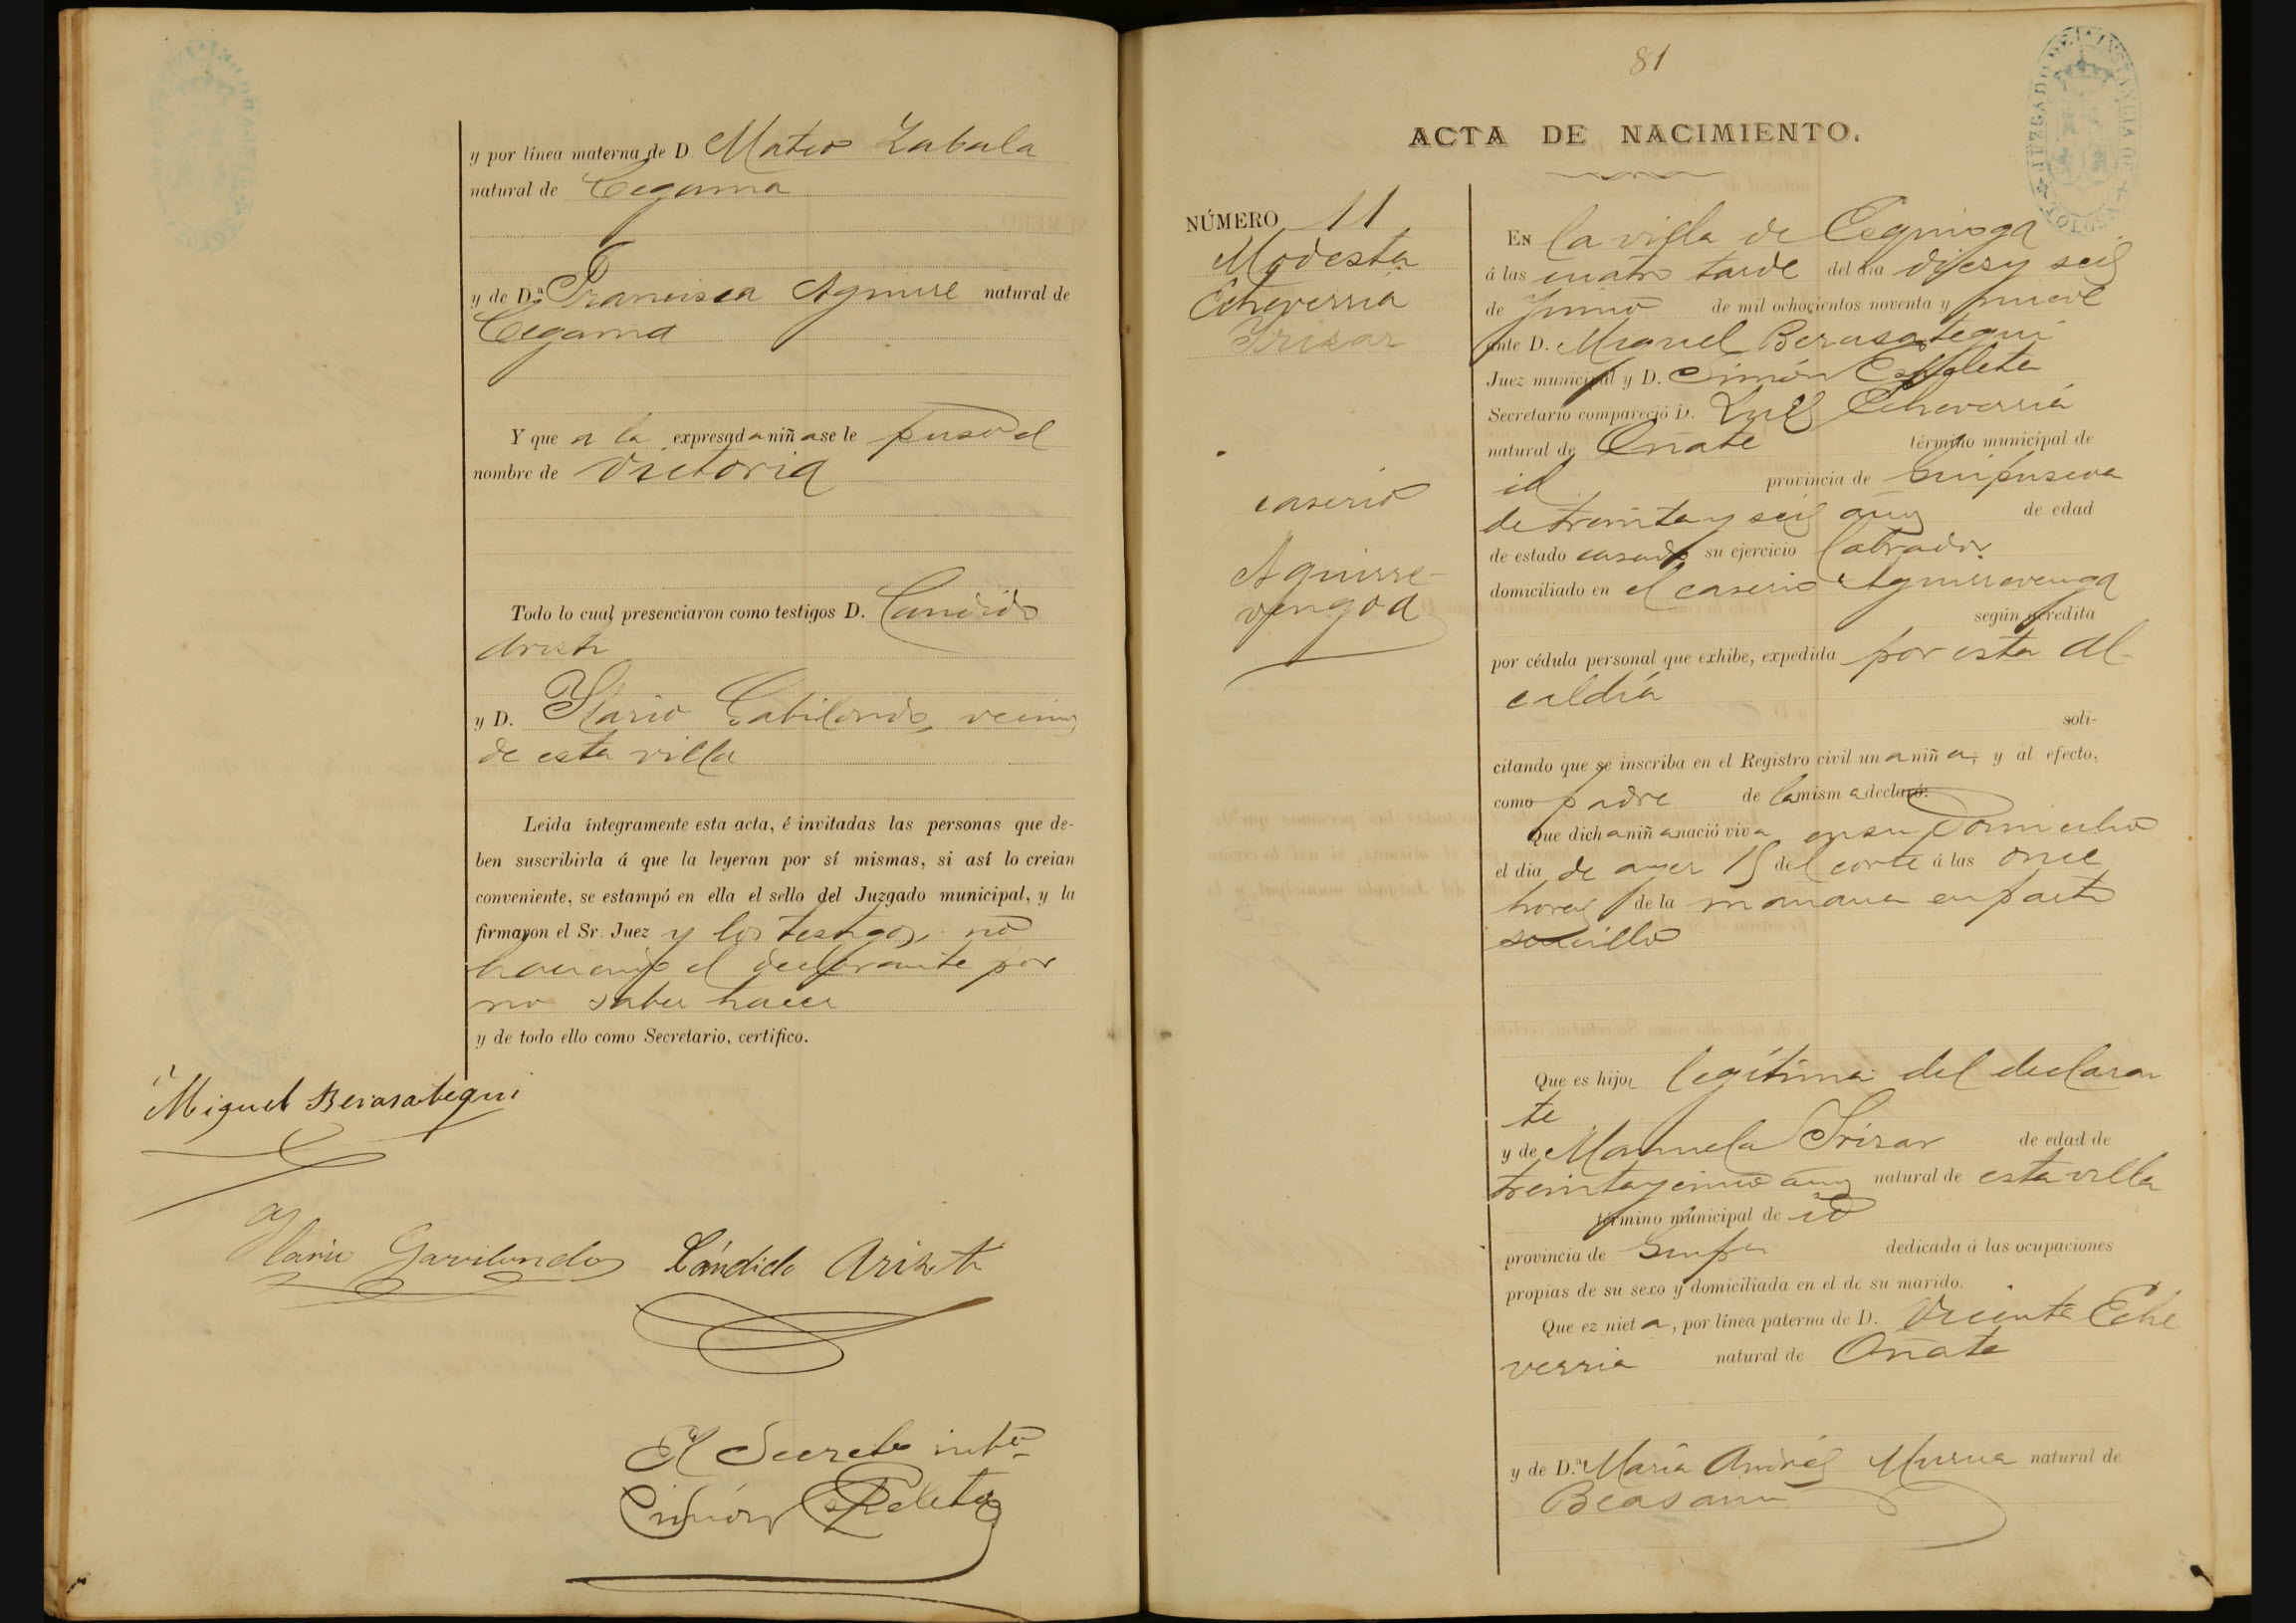 y por línea materna de D. Mateo Zabala
natural de Cegama
y de D.ª Francisca Aguirre natural de
Cegama
Y que a la expresada niña se le puso el
nombre de Victoria
Todo lo cual presenciaron como testigos D. Candido
Aristi
y D. Ylario Gabilondo, vecinos
de esta villa
Leida íntegramente esta acta, é invitadas las personas que de-
ben suscribirla á que la leyeran por sí mismas, si así lo creian
conveniente, se estampó en ella el sello del Juzgado municipal, y la
firmaron el Sr. Juez y los testigos, no
haciendo el declarante por
no saber hacer
y de todo ello como Secretario, certifico.
Miguel Berasategui
Ylario Gavilondo Cándido Aristi
El Secreto into
Simón Ezpeleta
81
ACTA DE NACIMIENTO.
NÚMERO 11
Modesta
Echeverria
Yrizar
caserio
Aguirre-
vengoa
En la villa de Ezquioga
á las cuatro tarde del dia diez y seis
de Junio de mil ochocientos noventa y nueve
ante D. Miguel Berasategui
Juez municipal y D. Simón Ezpeleta
Secretario compareció D. Luis Echeverria
natural de Oñate término municipal de
id provincia de Guipuzcoa
de treinta y seis años de edad
de estado casado su ejercicio labrador
domiciliado en el caserio Aguirrevengoa
según acredita
por cédula personal que exhibe, expedida por esta Al-
caldía
soli-
citando que se inscriba en el Registro civil una niña; y al efecto,
como padre de la misma declaró:
Que dicha niña nació viva en su domicilio
el dia de ayer 15 del corte á las once
horas de la mañana en parto
sencillo
Que es hija legítima del declaran
te
y de Manuela Irizar de edad de
treinta y cinco años natural de esta villa
término municipal de id
provincia de Guipa dedicada á las ocupaciones
propias de su sexo y domiciliada en el de su marido.
Que ez nieta, por línea paterna de D. Vicente Eche
verria natural de Oñate
y de D.ª María Andrés Murua natural de
Beasain